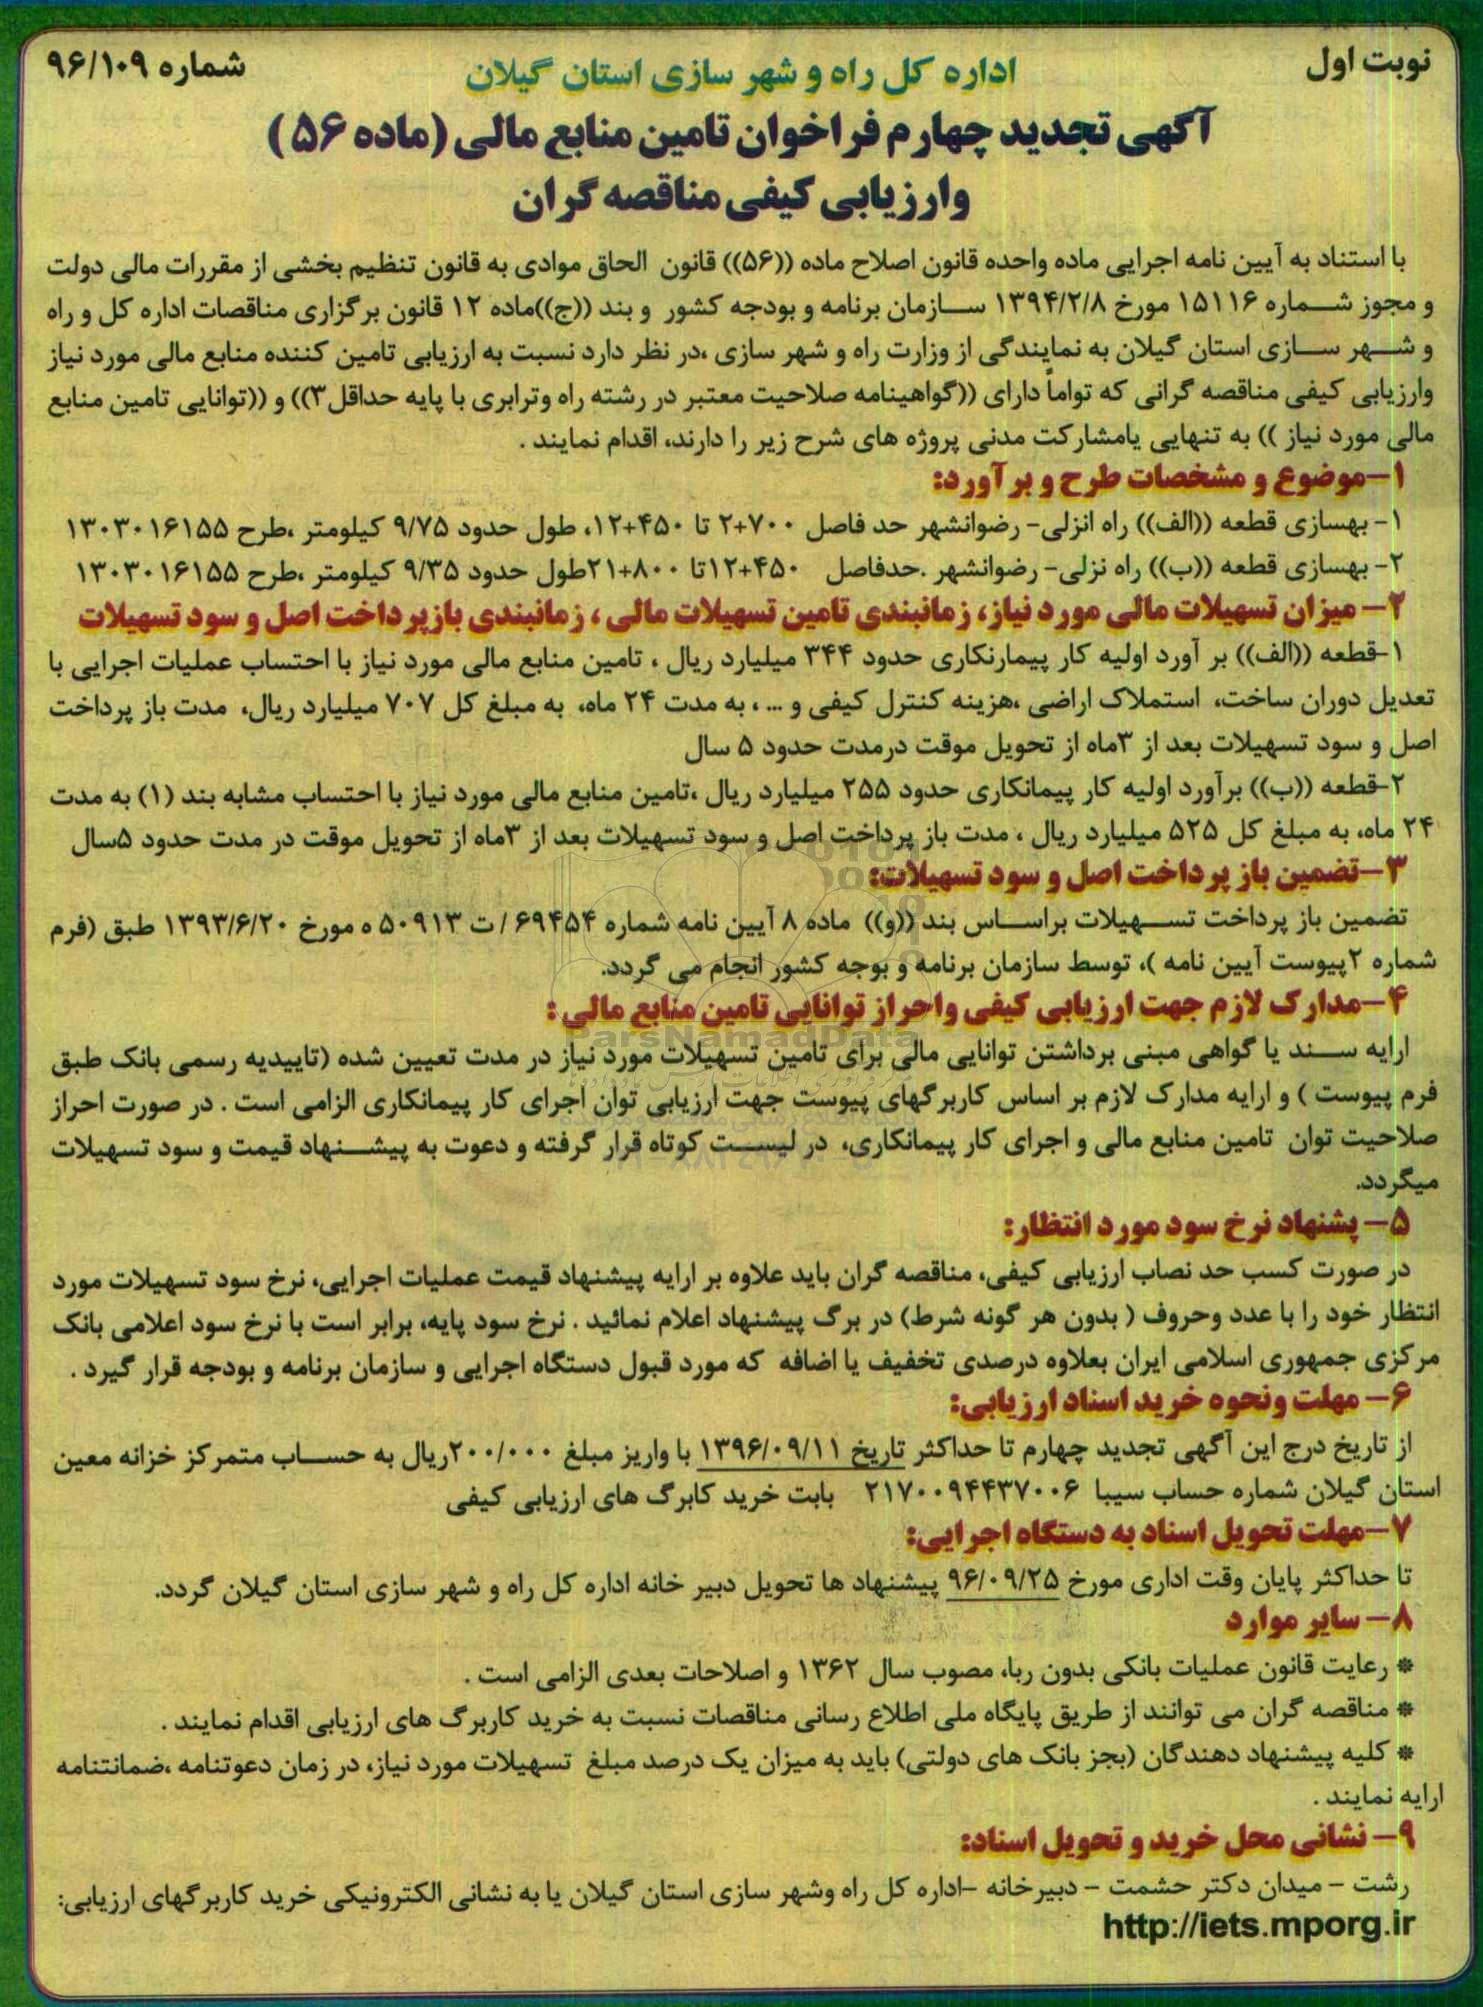 نوبت اول
شماره ۹۶/۱۰۹
اداره کل راه و شهر سازی استان گیلان
آگهی تجدید چهارم فراخوان تامین منابع مالی (ماده ۵۶)
وارزیابی کیفی مناقصه گران
با استناد به آیین نامه اجرایی ماده واحده قانون اصلاح ماده ((۵۶)) قانون الحاق موادی به قانون تنظیم بخشی از مقررات مالی دولت
و مجوز شماره ۱۵۱۱۶ مورخ ۱۳۹۴/۲/۸ سازمان برنامه و بودجه کشور و بند ((ج))ماده ۱۲ قانون برگزاری مناقصات اداره کل و راه
و شهر سازی استان گیلان به نمایندگی از وزارت راه و شهر سازی ،در نظر دارد نسبت به ارزیابی تامین کننده منابع مالی مورد نیاز
وارزیابی کیفی مناقصه گرانی که تواماً دارای ((گواهینامه صلاحیت معتبر در رشته راه وترابری با پایه حداقل۳)) و ((توانایی تامین منابع
مالی مورد نیاز )) به تنهایی یامشارکت مدنی پروژه های شرح زیر را دارند، اقدام نمایند .
۱-موضوع و مشخصات طرح و برآورد:
۱- بهسازی قطعه ((الف)) راه انزلی- رضوانشهر حد فاصل ۷۰۰+۲ تا ۴۵۰+۱۲، طول حدود ۹/۷۵ کیلومتر ،طرح ۱۳۰۳۰۱۶۱۵۵
۲- بهسازی قطعه ((ب)) راه نزلی- رضوانشهر .حدفاصل ۴۵۰+۱۲تا ۸۰۰+۲۱طول حدود ۹/۳۵ کیلومتر ،طرح ۱۳۰۳۰۱۶۱۵۵
۲- میزان تسهیلات مالی مورد نیاز، زمانبندی تامین تسهیلات مالی ، زمانبندی بازپرداخت اصل و سود تسهیلات
۱-قطعه ((الف)) بر آورد اولیه کار پیمارنکاری حدود ۳۴۴ میلیارد ریال ، تامین منابع مالی مورد نیاز با احتساب عملیات اجرایی با
تعدیل دوران ساخت، استملاک اراضی ،هزینه کنترل کیفی و ... ، به مدت ۲۴ ماه، به مبلغ کل ۷۰۷ میلیارد ریال، مدت باز پرداخت
اصل و سود تسهیلات بعد از ۳ماه از تحویل موقت درمدت حدود ۵ سال
۲-قطعه ((ب)) برآورد اولیه کار پیمانکاری حدود ۲۵۵ میلیارد ریال ،تامین منابع مالی مورد نیاز با احتساب مشابه بند (۱) به مدت
۲۴ ماه، به مبلغ کل ۵۲۵ میلیارد ریال ، مدت باز پرداخت اصل و سود تسهیلات بعد از ۳ماه از تحویل موقت در مدت حدود ۵سال
۳-تضمین باز پرداخت اصل و سود تسهیلات:
تضمین باز پرداخت تسهیلات براساس بند ((و)) ماده ۸ آیین نامه شماره ۶۹۴۵۴ / ت ۵۰۹۱۳ ه مورخ ۱۳۹۳/۶/۲۰ طبق (فرم
شماره ۲پیوست آیین نامه )، توسط سازمان برنامه و بوجه کشور انجام می گردد.
۴-مدارک لازم جهت ارزیابی کیفی واحراز توانایی تامین منابع مالی :
ارایه سند یا گواهی مبنی برداشتن توانایی مالی برای تامین تسهیلات مورد نیاز در مدت تعیین شده (تاییدیه رسمی بانک طبق
فرم پیوست ) و ارایه مدارک لازم بر اساس کاربرگهای پیوست جهت ارزیابی توان اجرای کار پیمانکاری الزامی است . در صورت احراز
صلاحیت توان تامین منابع مالی و اجرای کار پیمانکاری، در لیست کوتاه قرار گرفته و دعوت به پیشنهاد قیمت و سود تسهیلات
میگردد.
۵- پشنهاد نرخ سود مورد انتظار:
در صورت کسب حد نصاب ارزیابی کیفی، مناقصه گران باید علاوه بر ارایه پیشنهاد قیمت عملیات اجرایی، نرخ سود تسهیلات مورد
انتظار خود را با عدد وحروف ( بدون هر گونه شرط) در برگ پیشنهاد اعلام نمائید . نرخ سود پایه، برابر است با نرخ سود اعلامی بانک
مرکزی جمهوری اسلامی ایران بعلاوه درصدی تخفیف یا اضافه که مورد قبول دستگاه اجرایی و سازمان برنامه و بودجه قرار گیرد .
۶- مهلت ونحوه خرید اسناد ارزیابی:
از تاریخ درج این آگهی تجدید چهارم تا حداکثر تاریخ ۱۳۹۶/۰۹/۱۱ با واریز مبلغ ۲۰۰/۰۰۰ریال به حساب متمرکز خزانه معین
استان گیلان شماره حساب سیبا ۲۱۷۰۰۹۴۴۳۷۰۰۶ بابت خرید کابرگ های ارزیابی کیفی
۷-مهلت تحویل اسناد به دستگاه اجرایی:
تا حداکثر پایان وقت اداری مورخ ۹۶/۰۹/۲۵ پیشنهاد ها تحویل دبیر خانه اداره کل راه و شهر سازی استان گیلان گردد.
۸- سایر موارد
* رعایت قانون عملیات بانکی بدون ربا، مصوب سال ۱۳۶۲ و اصلاحات بعدی الزامی است .
* مناقصه گران می توانند از طریق پایگاه ملی اطلاع رسانی مناقصات نسبت به خرید کاربرگ های ارزیابی اقدام نمایند .
* کلیه پیشنهاد دهندگان (بجز بانک های دولتی) باید به میزان یک درصد مبلغ تسهیلات مورد نیاز، در زمان دعوتنامه ،ضمانتنامه
ارایه نمایند .
۹- نشانی محل خرید و تحویل اسناد:
رشت - میدان دکتر حشمت - دبیرخانه -اداره کل راه وشهر سازی استان گیلان یا به نشانی الکترونیکی خرید کاربرگهای ارزیابی:
http://iets.mporg.ir
ParsNamadData